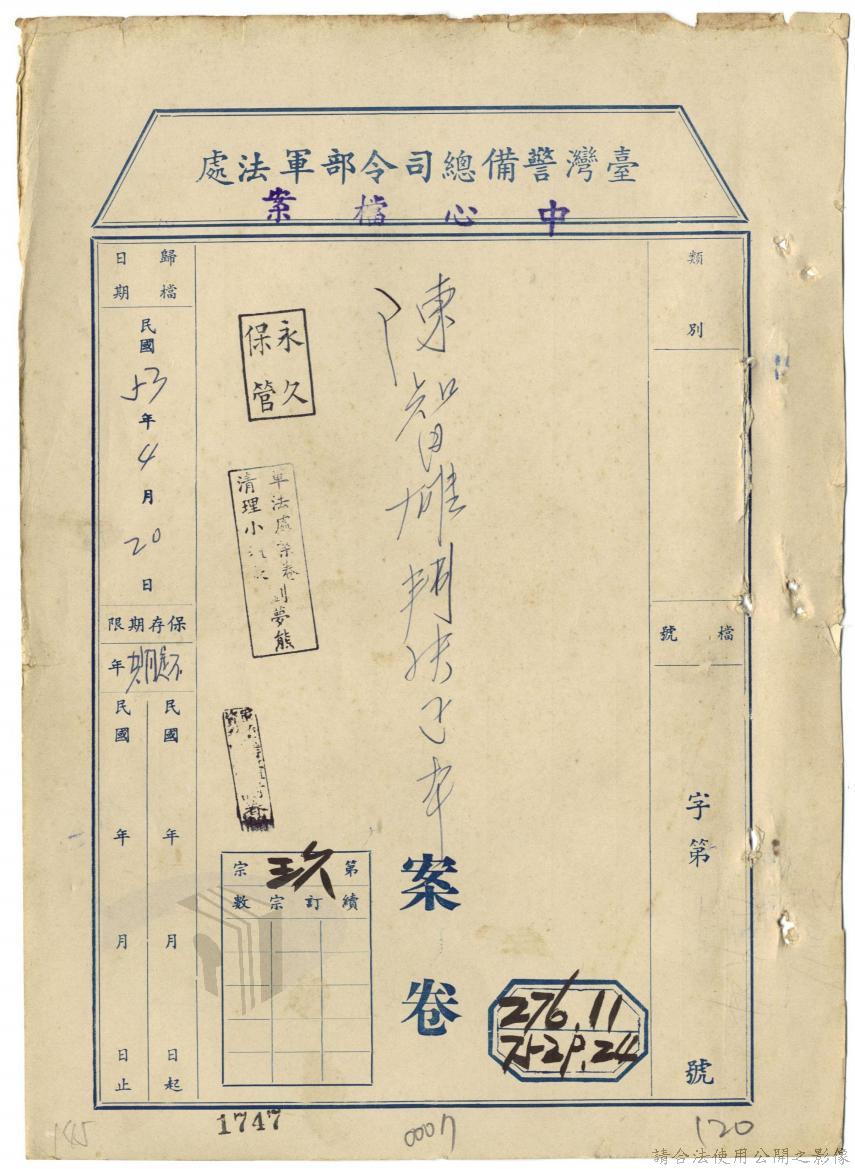 臺灣警備總司令部軍法處
中心檔案
類別
檔號
字第
號
陳智雄
案卷
永久
保管
軍法處案卷
夢熊
清理小
第玖宗
續訂宗數
276.11
歸檔
日期
民國
53
年
4
月
20
日
保存期限
年
民國 年 月 日起
民國 年 月 日止
1747
0007
120
請合法使用公開之影像